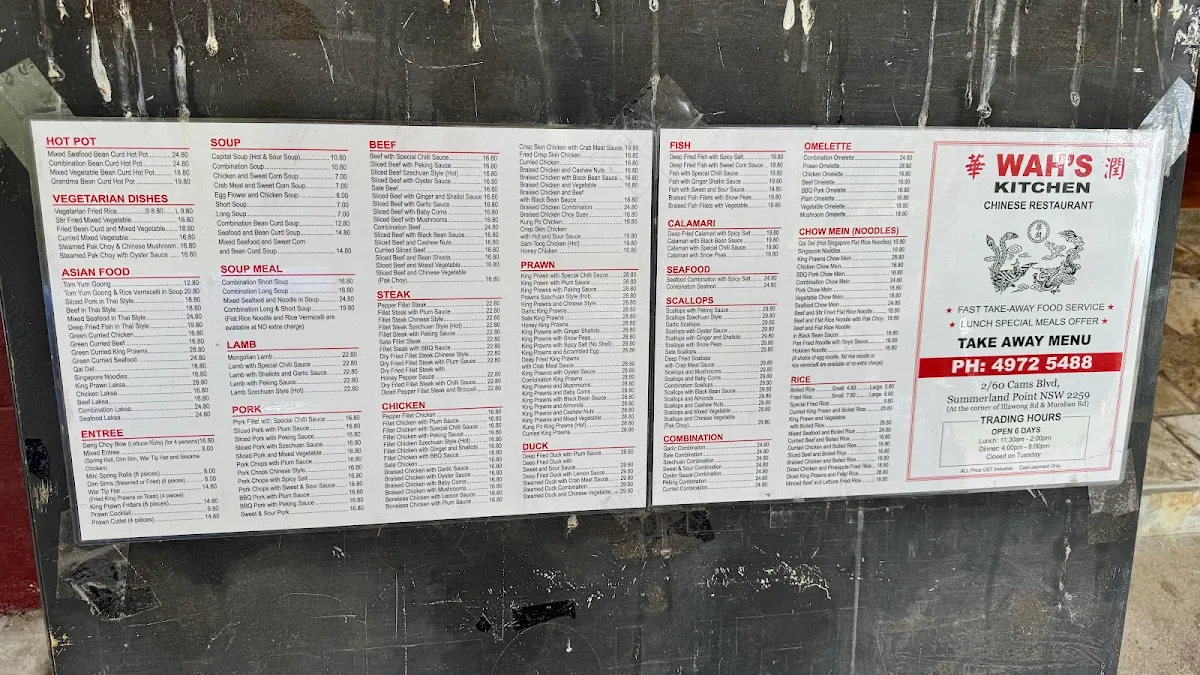 HOT POT
Mixed Seafood Bean Curd Hot Pot 24.80
Combination Bean Curd Hot Pot 24.80
Mixed Vegetable Bean Curd Hot Pot 18.80
Grandma Bean Curd Hot Pot 19.80
VEGETARIAN DISHES
Vegetarian Fried Rice S 8.80 L 9.80
Stir Fried Mixed Vegetable 16.80
Fried Bean Curd and Mixed Vegetable 18.80
Curried Mixed Vegetable 16.80
Steamed Pak Choy & Chinese Mushroom 16.80
Steamed Pak Choy with Oyster Sauce 16.80
ASIAN FOOD
Tom Yum Goong 12.80
Tom Yum Goong & Rice Vermicelli in Soup 20.80
Sliced Pork in Thai Style 18.80
Beef in Thai Style 18.80
Mixed Seafood in Thai Style 24.80
Deep Fried Fish in Thai Style 19.80
Green Curried Chicken 18.80
Green Curried Beef 18.80
Green Curried King Prawns 28.80
Green Curried Seafood 24.80
Qai Del
Singapore Noodles
King Prawn Laksa 28.80
Chicken Laksa
Beef Laksa
Combination Laksa 24.80
Seafood Laksa 24.80
ENTREE
Sang Choy Bow (Lettuce Rolls) (for 4 persons) 16.80
Mixed Entree 8.00
(Spring Roll, Dim Sim, War Tip Har and Sesame
Chicken)
Mini Spring Rolls (6 pieces) 8.00
Dim Sims (Steamed or Fried) (6 pieces) 8.00
War Tip Har 14.80
(Fried King Prawns on Toast) (4 pieces)
King Prawn Fritters (6 pieces) 14.80
Prawn Cocktail 9.80
Prawn Cutlet (4 pieces) 14.80
SOUP
Capital Soup (Hot & Sour Soup) 10.80
Combination Soup 10.80
Chicken and Sweet Corn Soup 7.00
Crab Meat and Sweet Corn Soup 7.00
Egg Flower and Chicken Soup 8.00
Short Soup 7.00
Long Soup 7.00
Combination Bean Curd Soup 12.80
Seafood and Bean Curd Soup 14.80
Mixed Seafood and Sweet Corn
and Bean Curd Soup 14.80
SOUP MEAL
Combination Short Soup 16.80
Combination Long Soup 16.80
Mixed Seafood and Noodle in Soup 24.80
Combination Long & Short Soup 19.80
(Flat Rice Noodle and Rice Vermicelli are
available at NO extra charge)
LAMB
Mongolian Lamb 22.80
Lamb with Special Chilli Sauce 22.80
Lamb with Shallots and Garlic Sauce 22.80
Lamb with Peking Sauce 22.80
Lamb Szechuan Style (Hot) 22.80
PORK
Pork Fillet with Special Chilli Sauce 16.80
Sliced Pork with Plum Sauce 16.80
Sliced Pork with Peking Sauce 16.80
Sliced Pork with Szechuan Sauce 16.80
Sliced Pork and Mixed Vegetable 16.80
Pork Chops with Plum Sauce 16.80
Pork Chops Chinese Style 16.80
Pork Chops with Spicy Salt 16.80
Pork Chops with Sweet & Sour Sauce 16.80
BBQ Pork with Plum Sauce 16.80
BBQ Pork with Peking Sauce 16.80
Sweet & Sour Pork 16.80
BEEF
Beef with Special Chilli Sauce 16.80
Sliced Beef with Peking Sauce 16.80
Sliced Beef Szechuan Style (Hot) 16.80
Sliced Beef with Oyster Sauce 16.80
Sate Beef 16.80
Sliced Beef with Ginger and Shallot Sauce 16.80
Sliced Beef with Garlic Sauce 16.80
Sliced Beef with Baby Corns 16.80
Sliced Beef with Mushrooms 16.80
Combination Beef
Sliced Beef with Black Bean Sauce 16.80
Sliced Beef and Cashew Nuts 16.80
Curried Sliced Beef 16.80
Sliced Beef and Bean Shoots 16.80
Sliced Beef and Mixed Vegetable 16.80
Sliced Beef and Chinese Vegetable
(Pak Choy) 16.80
STEAK
Pepper Fillet Steak 22.80
Fillet Steak with Plum Sauce 22.80
Fillet Steak Chinese Style 22.80
Fillet Steak Szechuan Style (Hot) 22.80
Fillet Steak with Peking Sauce 22.80
Sate Fillet Steak 22.80
Fillet Steak with BBQ Sauce 22.80
Dry Fried Fillet Steak Chinese Style 22.80
Dry Fried Fillet Steak with Plum Sauce 22.80
Dry Fried Fillet Steak with
Honey Pepper Sauce 22.80
Dry Fried Fillet Steak with Chilli Sauce 22.80
Diced Pepper Fillet Steak and Broccoli 22.80
CHICKEN
Pepper Fillet Chicken 16.80
Fillet Chicken with Plum Sauce 16.80
Fillet Chicken with Special Chilli Sauce 16.80
Fillet Chicken with Peking Sauce 16.80
Fillet Chicken Szechuan Style (Hot) 16.80
Fillet Chicken with Ginger and Shallots 16.80
Fillet Chicken with BBQ Sauce 16.80
Sate Chicken 16.80
Braised Chicken with Garlic Sauce 16.80
Braised Chicken with Oyster Sauce 16.80
Braised Chicken with Baby Corns 16.80
Braised Chicken with Mushrooms 16.80
Boneless Chicken with Lemon Sauce 16.80
Boneless Chicken with Plum Sauce 16.80
Crisp Skin Chicken with Crab Meat Sauce 19.80
Fried Crisp Skin Chicken 16.80
Curried Chicken 16.80
Braised Chicken and Cashew Nuts 16.80
Braised Chicken with Black Bean Sauce 16.80
Braised Chicken and Vegetable 16.80
Braised Chicken and Beef
with Black Bean Sauce 16.80
Braised Chicken Combination 24.80
Braised Chicken Choy Suey 16.80
Kung Po Chicken 16.80
Crisp Skin Chicken
with Hot and Sour Sauce 19.80
Sam Tong Chicken (Hot) 19.80
Honey Chicken 16.80
PRAWN
King Prawn with Special Chilli Sauce 28.80
King Prawn with Plum Sauce 28.80
King Prawns with Peking Sauce 28.80
Prawns Szechuan Style (Hot) 28.80
King Prawns and Chinese Style 28.80
Garlic King Prawns 28.80
Sate King Prawns 28.80
Honey King Prawns 28.80
King Prawns with Ginger Shallots 28.80
King Prawns with Snow Peas 28.80
King Prawns with Spicy Salt (No Shell) 28.80
King Prawns and Scrambled Egg 28.80
King Prawns
with Crab Meat Sauce 28.80
King Prawns with Oyster Sauce 28.80
Combination King Prawns 28.80
King Prawns and Mushrooms 28.80
King Prawns with Baby Corns 28.80
King Prawns with Black Bean Sauce 28.80
King Prawns and Almonds 28.80
King Prawns and Cashew Nuts 28.80
King Prawns and Mixed Vegetable 28.80
Kung Po King Prawns (Hot) 28.80
Curried King Prawns 28.80
DUCK
Deep Fried Duck with Plum Sauce 28.80
Deep Fried Duck with
Sweet and Sour Sauce 29.80
Deep Fried Duck with Lemon Sauce 29.80
Steamed Duck with Crab Meat Sauce 29.80
Steamed Duck Combination 29.80
Steamed Duck and Chinese Vegetable 29.80
FISH
Deep Fried Fish with Spicy Salt 19.80
Deep Fried Fish with Sweet Corn Sauce 19.80
Fish with Special Chilli Sauce 19.80
Fish with Ginger Shallot Sauce 19.80
Fish with Sweet and Sour Sauce 19.80
Braised Fish Fillets with Snow Peas 19.80
Braised Fish Fillets with Vegetable 19.80
CALAMARI
Deep Fried Calamari with Spicy Salt 19.80
Calamari with Black Bean Sauce 19.80
Calamari with Special Chilli Sauce 19.80
Calamari with Snow Peas 19.80
SEAFOOD
Seafood Combination with Spicy Salt 24.80
Combination Seafood 24.80
SCALLOPS
Scallops with Peking Sauce 29.80
Scallops Szechuan Style 29.80
Garlic Scallops 29.80
Scallops with Oyster Sauce 29.80
Scallops with Ginger and Shallots 29.80
Scallops with Snow Peas 29.80
Sate Scallops 29.80
Deep Fried Scallops
with Crab Meat Sauce 29.80
Scallops and Mushrooms 29.80
Scallops and Baby Corns 29.80
Combination Scallops 29.80
Scallops with Black Bean Sauce 29.80
Scallops and Almonds 29.80
Scallops and Cashew Nuts 29.80
Scallops and Mixed Vegetable 29.80
Scallops and Chinese Vegetable
(Pak Choy) 29.80
COMBINATION
Garlic Combination 24.80
Sate Combination 24.80
Szechuan Combination 24.80
Sweet & Sour Combination 24.80
Oyster Sauce Combination 24.80
Peking Combination 24.80
Curried Combination 24.80
OMELETTE
Combination Omelette 24.80
Prawn Omelette 28.80
Chicken Omelette 18.80
Beef Omelette 18.80
BBQ Pork Omelette 18.80
Plain Omelette 16.80
Vegetable Omelette 18.80
Mushroom Omelette 18.80
CHOW MEIN (NOODLES)
Qai Del (Hot Singapore Flat Rice Noodles) 16.80
Singapore Noodles 16.80
King Prawns Chow Mein 28.80
Chicken Chow Mein 16.80
BBQ Pork Chow Mein 16.80
Combination Chow Mein 24.80
Pork Chow Mein 16.80
Vegetable Chow Mein 16.80
Seafood Chow Mein 24.80
Beef and Stir Fried Flat Rice Noodle 16.80
Beef and Flat Rice Noodle with Pak Choy 16.80
Beef and Flat Rice Noodle
in Black Bean Sauce 16.80
Pan Fried Noodle with Soya Sauce
Hokkien Noodle 16.80
(A choice of egg noodle, flat rice noodle or
rice vermicelli are available at no extra charge)
RICE
Boiled Rice Small 4.80 Large 5.80
Fried Rice Small 7.80 Large 8.80
Special Fried Rice 9.80
Curried King Prawn and Boiled Rice 28.80
King Prawn and Vegetable
with Boiled Rice 28.80
Mixed Seafood and Boiled Rice 24.80
Curried Beef and Boiled Rice 16.80
Curried Chicken and Boiled Rice 16.80
Sliced Beef and Boiled Rice 16.80
King Prawn and Boiled Rice
Braised Chicken and Boiled Rice 16.80
Diced Chicken and Pineapple Fried Rice 16.80
Diced King Prawns and Fried Rice
Minced Beef and Lettuce Fried Rice 16.80
華 WAH'S 潤
KITCHEN
CHINESE RESTAURANT
★ FAST TAKE-AWAY FOOD SERVICE ★
★ LUNCH SPECIAL MEALS OFFER ★
TAKE AWAY MENU
PH: 4972 5488
2/60 Cams Blvd,
Summerland Point NSW 2259
(At the corner of Illawong Rd & Muraban Rd)
TRADING HOURS
OPEN 6 DAYS
Lunch: 11:30am - 2:00pm
Dinner: 4:00pm - 8:00pm
Closed on Tuesday
ALL Price GST inclusive. Cash payment Only.